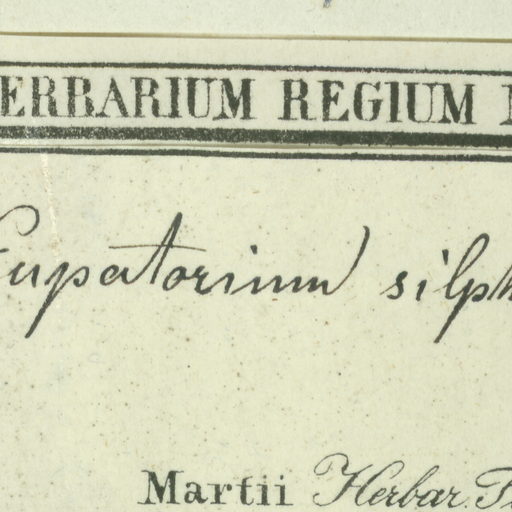 ERBARIUM REGIUM
Eupatorium silph
Martii Herbar.